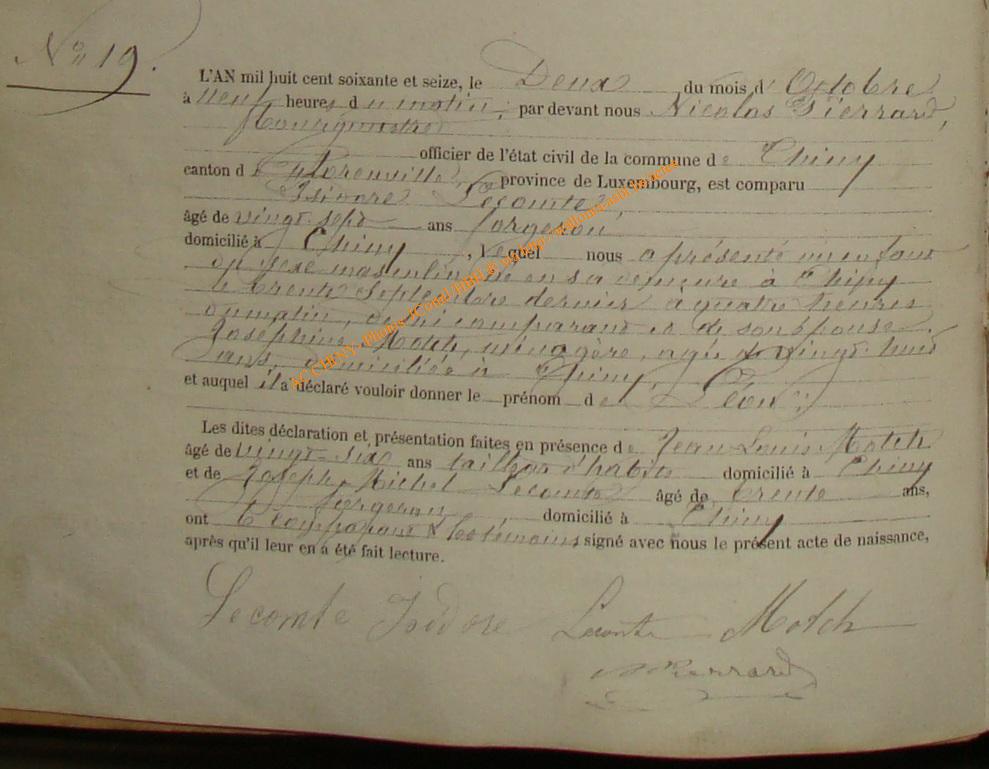 No 19.
L'AN mil huit cent soixante et seize, le Deux du mois d'Octobre
à neuf heures du matin, par devant nous Nicolas Pierrard,
Bourgmestre
officier de l'état civil de la commune de Chiny
canton de Florenville, province de Luxembourg, est comparu
Isidore Lecomte,
âgé de vingt-sept ans forgeron,
domicilié à Chiny, lequel nous a présenté un enfant
du sexe masculin, né en sa demeure à Chiny
le trente Septembre dernier à quatre heures
du matin, de lui comparant et de son épouse
Joséphine Motch, ménagère, agée de vingt-huit
ans, domiciliée à Chiny,
et auquel il a déclaré vouloir donner le prénom de Léon
Les dites déclaration et présentation faites en présence de Jean-Louis Motch
âgé de vingt-six ans tailleur d'habits domicilié à Chiny
et de Joseph Michel Lecomte âgé de trente ans,
forgeron, domicilié à Chiny
ont le comparant & les témoins signé avec nous le présent acte de naissance,
après qu'il leur en a été fait lecture.
Lecomte Isidore Lecomte Motch
N Pierrard